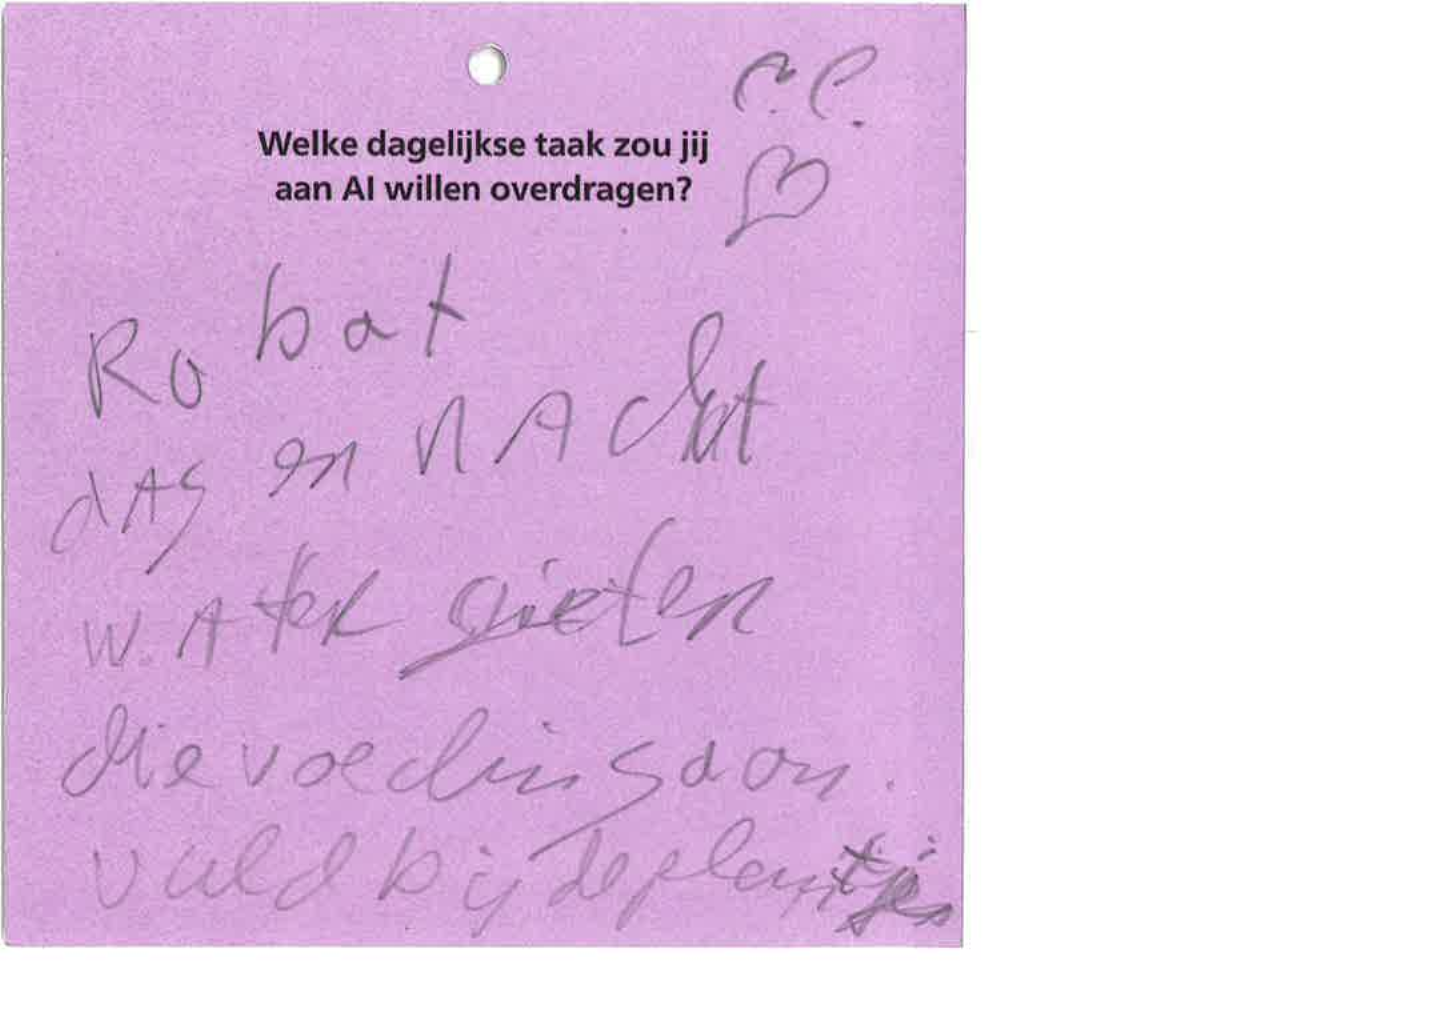 C.C.
Welke dagelijkse taak zou jij
aan AI willen overdragen?
Robat
dAg en nAcht
wAter gieten
die voedingsaan.
vuld bij de plantjes